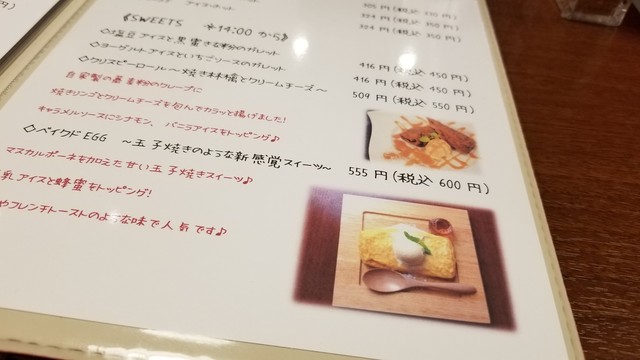 アイス・ホット
505 円 (税込 550 円)
324 円 (税込 350 円)
324 円 (税込 350 円)
《SWEETS ※14:00 から》
◇塩豆アイスと黒蜜きな粉のガレット 416 円 (税込 450 円)
◇ヨーグルトアイスといちごソースのガレット 416 円 (税込 450 円)
◇クリスピーロール 〜焼き林檎とクリームチーズ〜 509 円 (税込 550 円)
自家製の蕎麦粉のクレープに
焼きリンゴとクリームチーズを包んでカラッと揚げました!
キャラメルソースにシナモン、バニラアイスをトッピング♪
◇ベイクドEGG 〜玉子焼きのような新感覚スイーツ〜 555 円 (税込 600 円)
マスカルポーネを加えた甘い玉子焼きスイーツ♪
乳アイスと蜂蜜をトッピング!
やフレンチトーストのような味で人気です♪